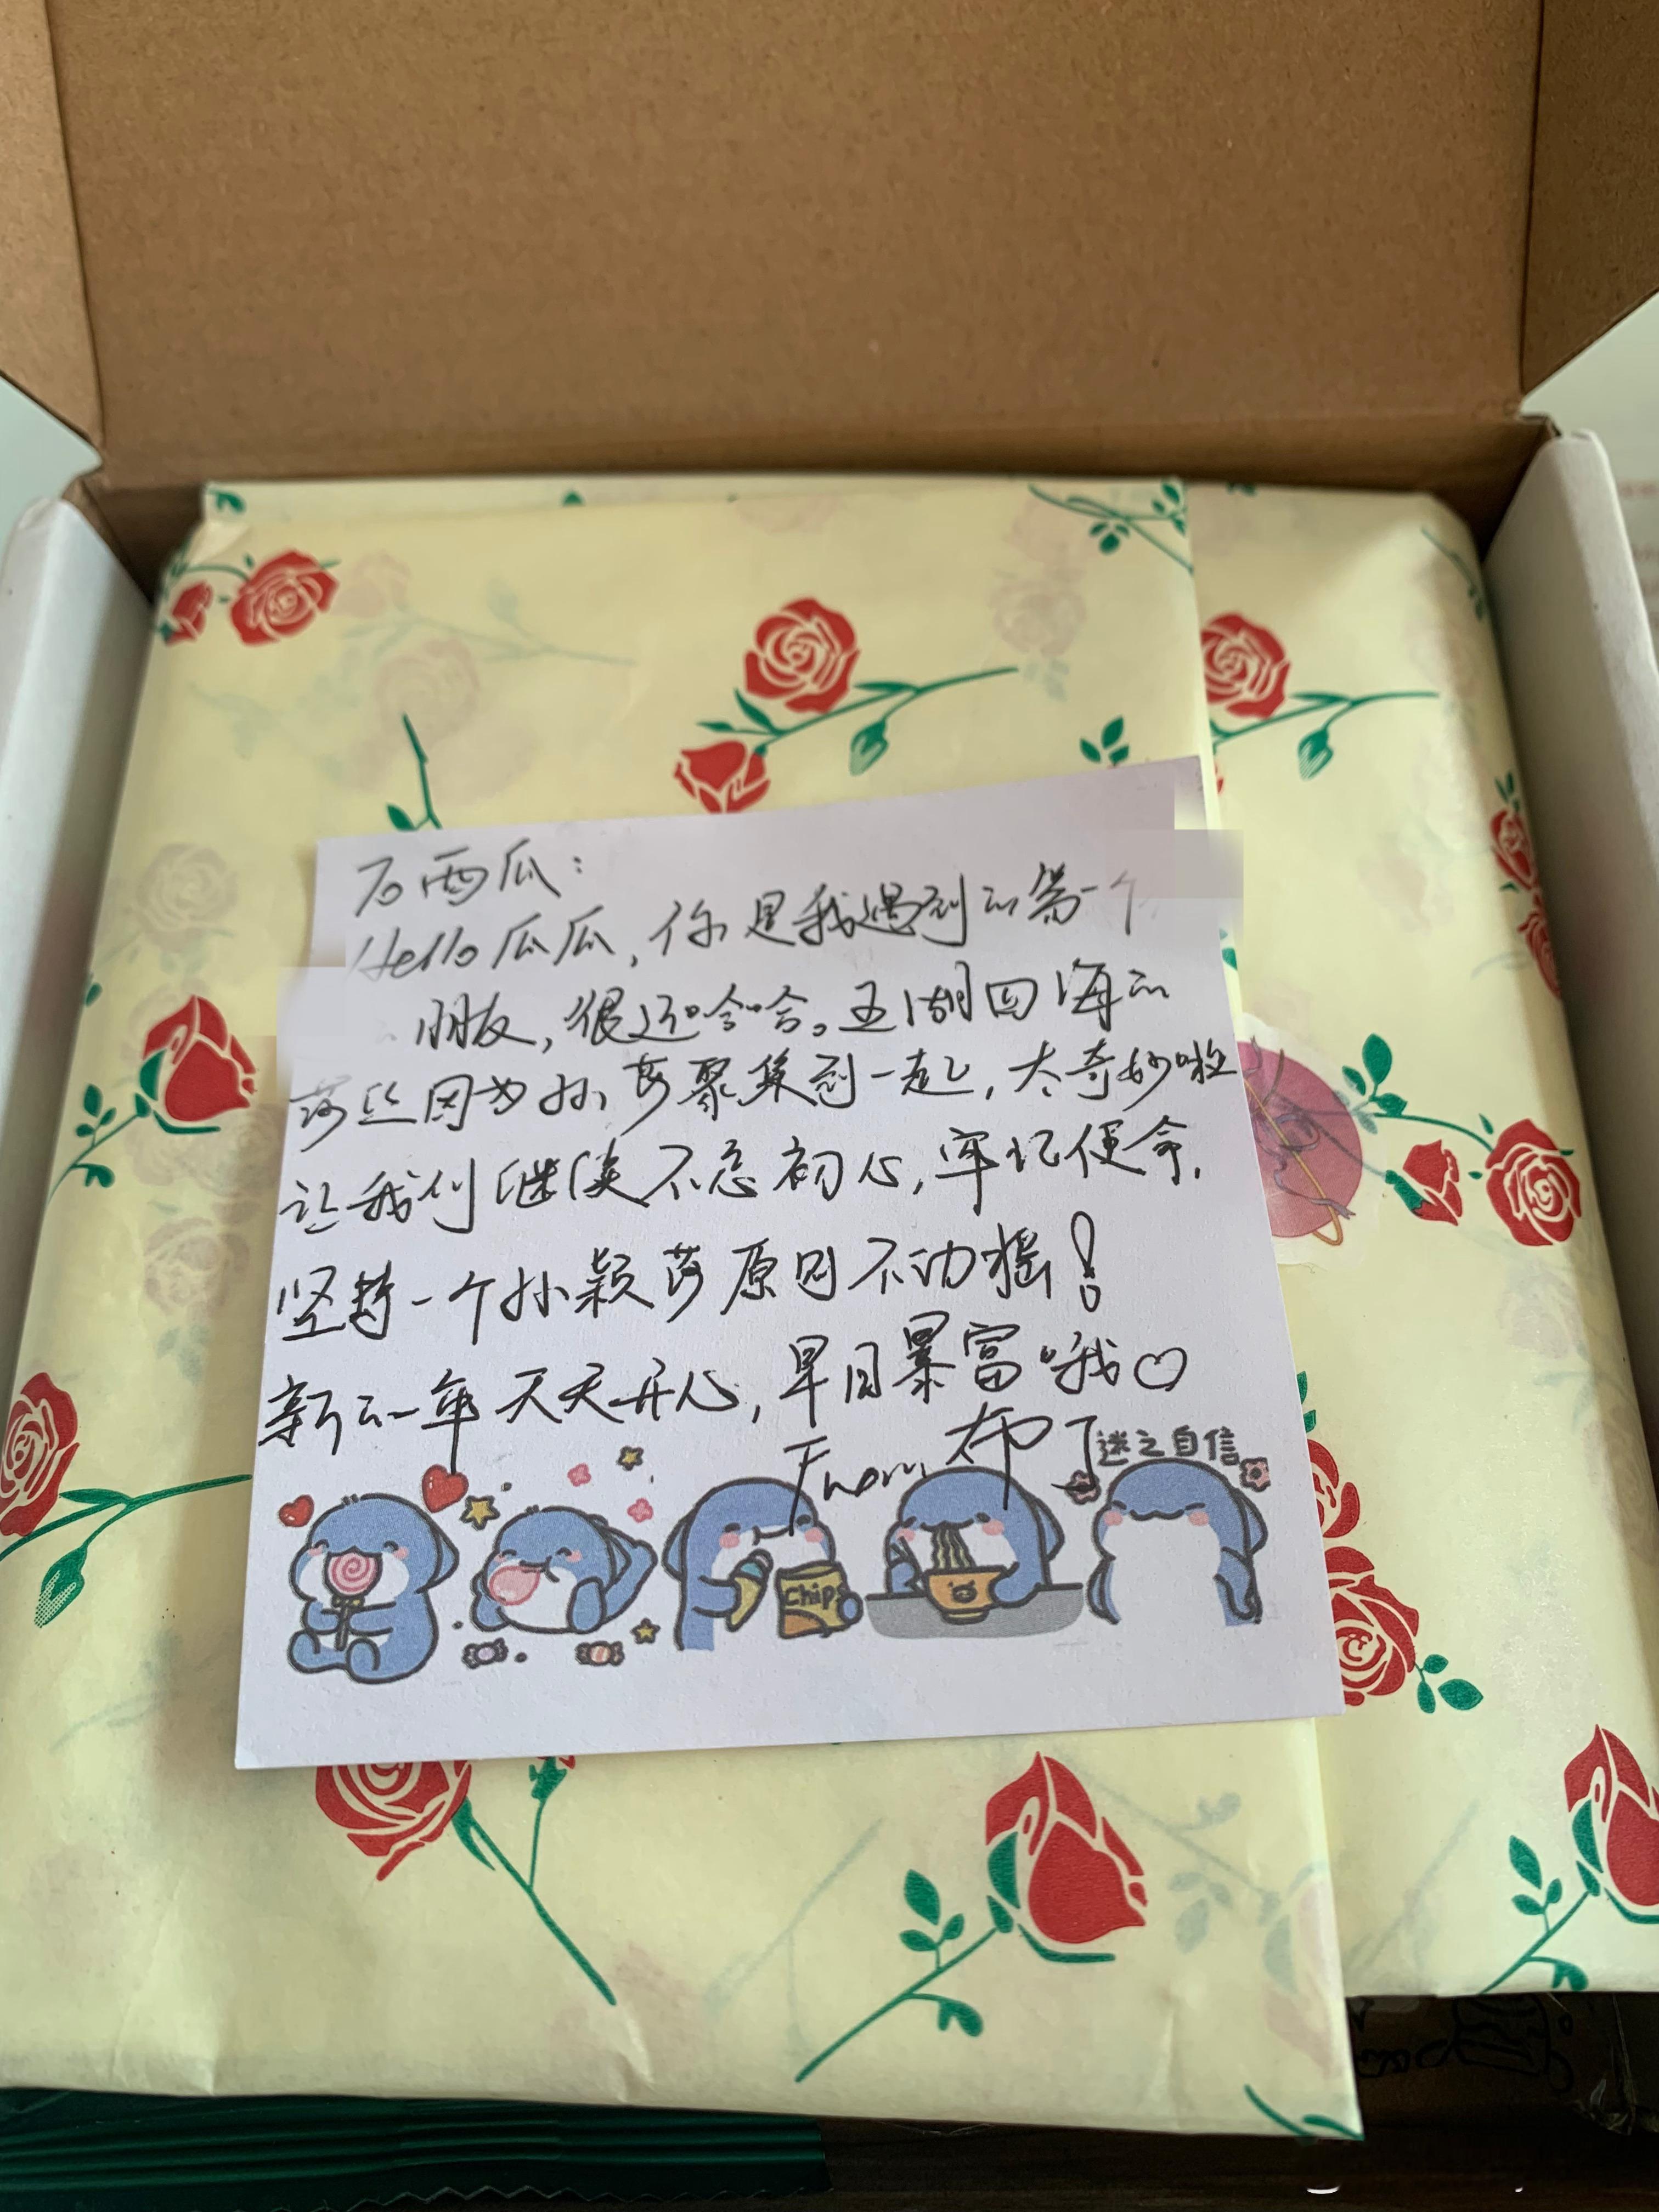 To 西瓜：
Hello 瓜瓜，你是我遇到的第一个
朋友，很远哈哈。五湖四海的
莎丝因为孙莎聚集到一起，太奇妙啦
让我们继续不忘初心，牢记使命，
坚持一个孙颖莎原则不动摇！
新的一年天天开心，早日暴富哦♡
From 布丁
迷之自信
Chips